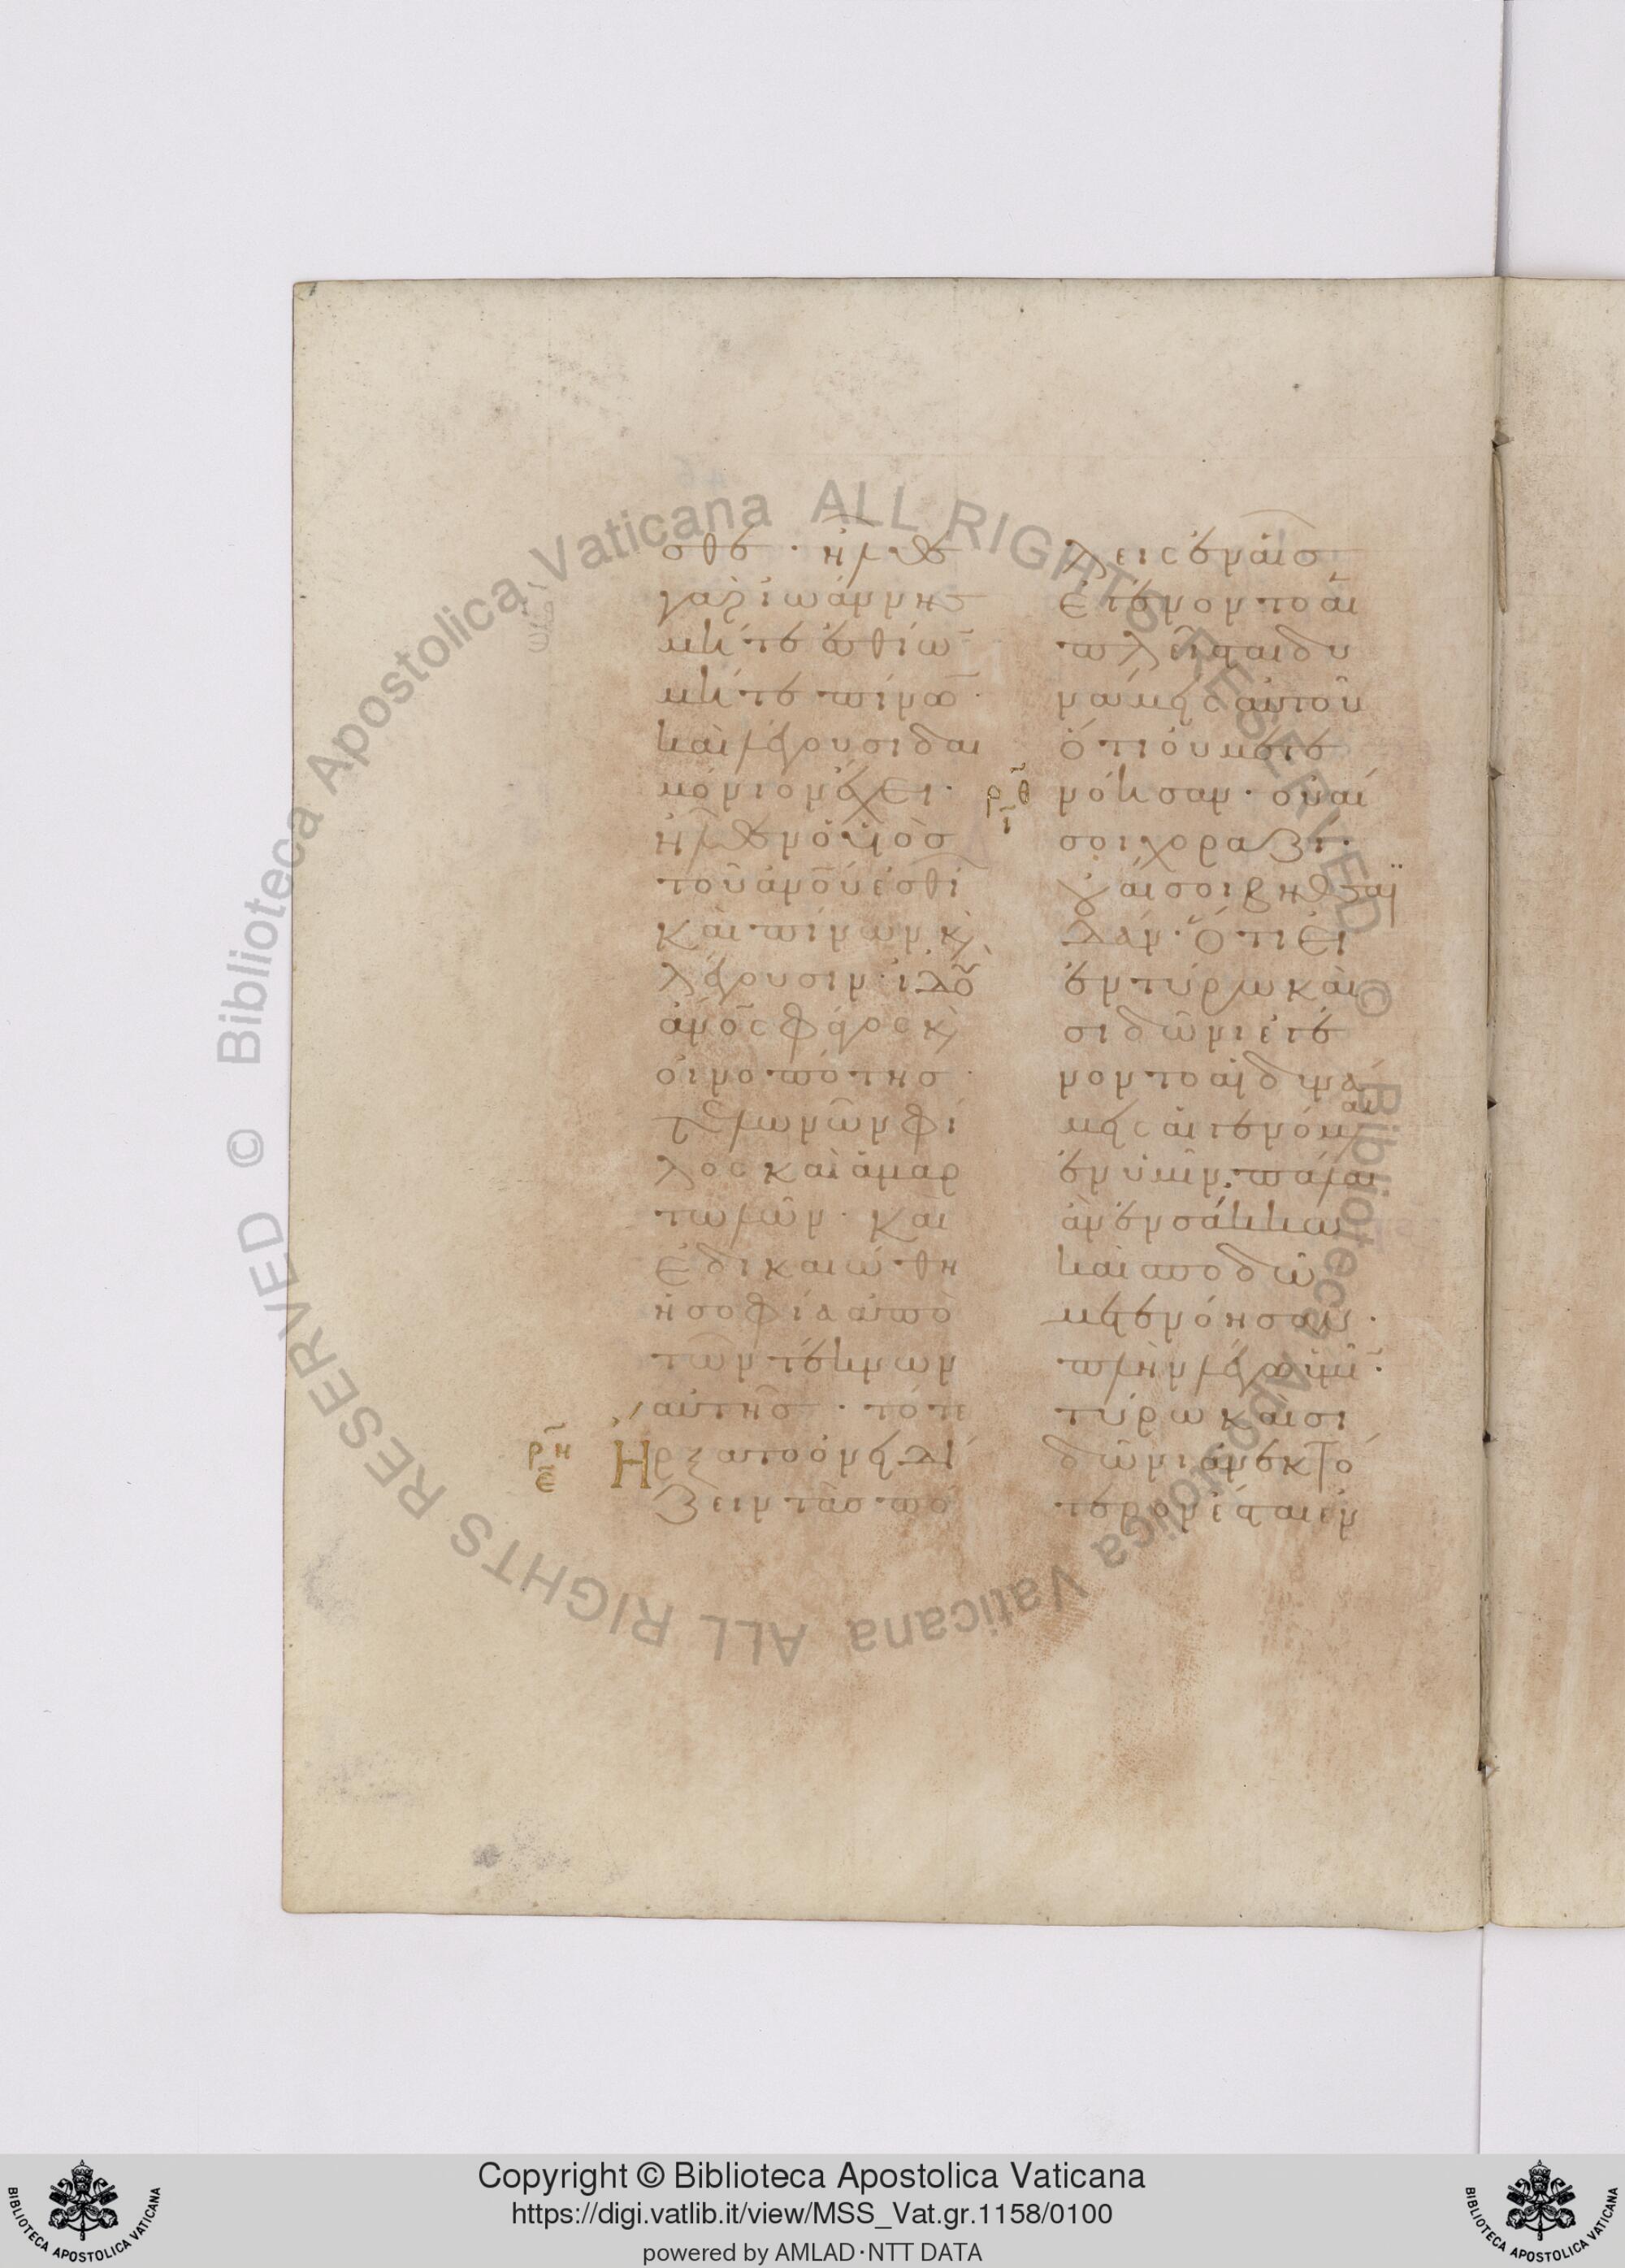 σθε · ἦλθε
γὰρ ἰωάννησ
μήτε ἐσθίω̄
μήτε πίνω̄ ·
καὶ λέγουσι δαι
μόνιον ἔχει ·
ἦλθεν ὁ υἱὸσ
τοῦ ἀνο̅υ ἐσθί
και πίνων κ̀
λέγουσιν · ἰδοὺ
ἀνο̅ς φάγος κ̀
οἰνοπότησ ·
τελωνῶν φί
λος καὶ ἁμαρ
τωλῶν · Και
ἐδικαιώθη
ἡ σοφία ἀπὸ
τῶν τέκνων
αὐτῆσ · τότε
ρ̅η̅ ε̅ Ἤρξατο ὀνειδί
ζειν τὰσ πό
λεις ἐν αἷσ
ἐγένοντο αἱ
πλεῖσται δυ
νάμεις αὐτοῦ
ὅτι οὐ μετε
ρ̅θ̅ ι̅ νόησαν · οὐαί
σοι χοραζί ·
οὐαί σοι βηθσαϊ
δάν · Ὅτι εἰ
ἐν τύρω καὶ
σιδῶνι ἐγέ
νοντο αἱ δυνά
μεις αἱ γενόμεναι
ἐν ὑμῖν · πάλαι
ἂν ἐν σάκκω
καὶ σποδῶ
μετενόησαν ·
πλὴν λέγω ὑμῖ̄ ·
τύρω και σι
δῶνι ἀνεκτό
τερον ἔσται ἐν
Copyright © Biblioteca Apostolica Vaticana
https://digi.vatlib.it/view/MSS_Vat.gr.1158/0100
powered by AMLAD·NTT DATA
BIBLIOTECA APOSTOLICA VATICANA
BIBLIOTECA APOSTOLICA VATICANA
© Biblioteca Apostolica Vaticana ALL RIGHTS RESERVED
© Biblioteca Apostolica Vaticana ALL RIGHTS RESERVED